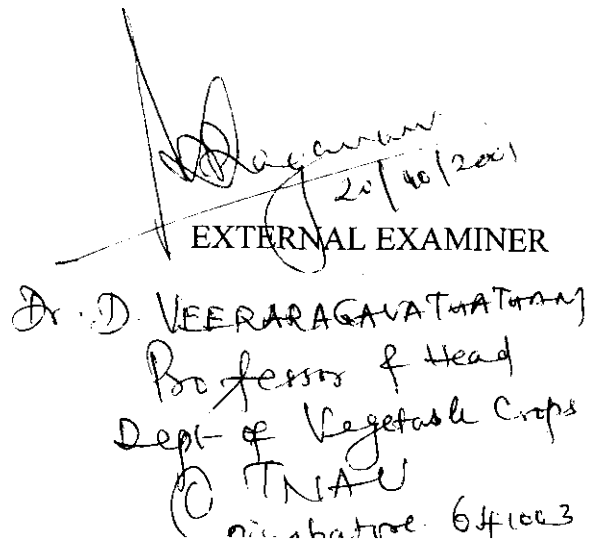 20/10/2001
EXTERNAL EXAMINER
Dr. D. VEERARAGAVATHATHAM
Professor & Head
Dept of Vegetable Crops
TNAU
Coimbatore 641003